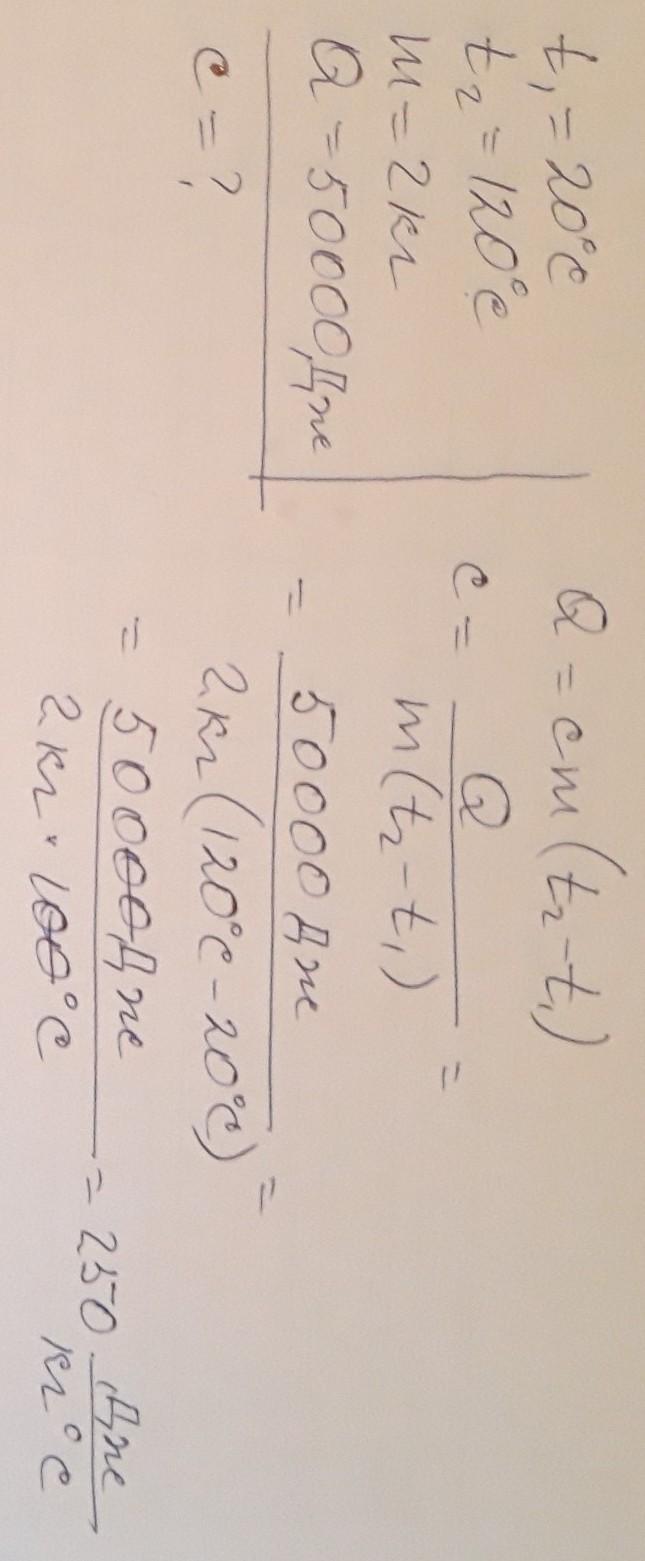 t₁ = 20°C
t₂ = 120°C
m = 2 кг
Q = 50000 Дж
c = ?
Q = cm(t₂ - t₁)
c = Q / m(t₂ - t₁) =
= 50000 Дж / 2 кг (120°C - 20°C) =
= 50000 Дж / 2 кг · 100°C = 250 Дж / кг°C